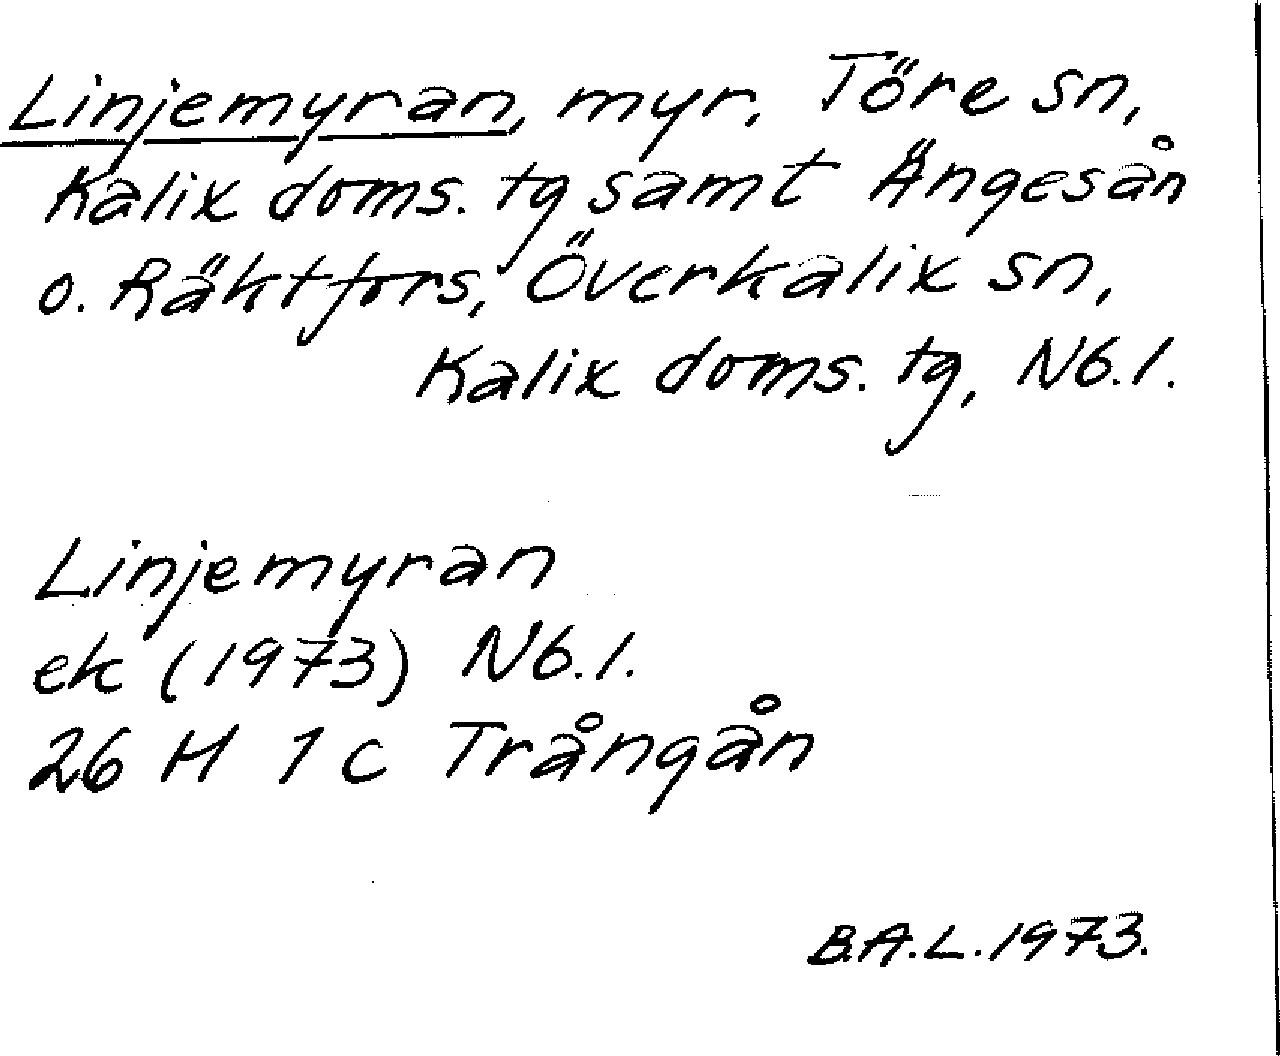 Linjemyran, myr. Töre sn,
Kalix doms. tg samt Ängesån
o. Räktfors, Överkalix sn,
Kalix doms. tg, Nb.l.
Linjemyran
ek (1973) Nb.l.
26 H 1 c Trångån
B.A.L. 1973.